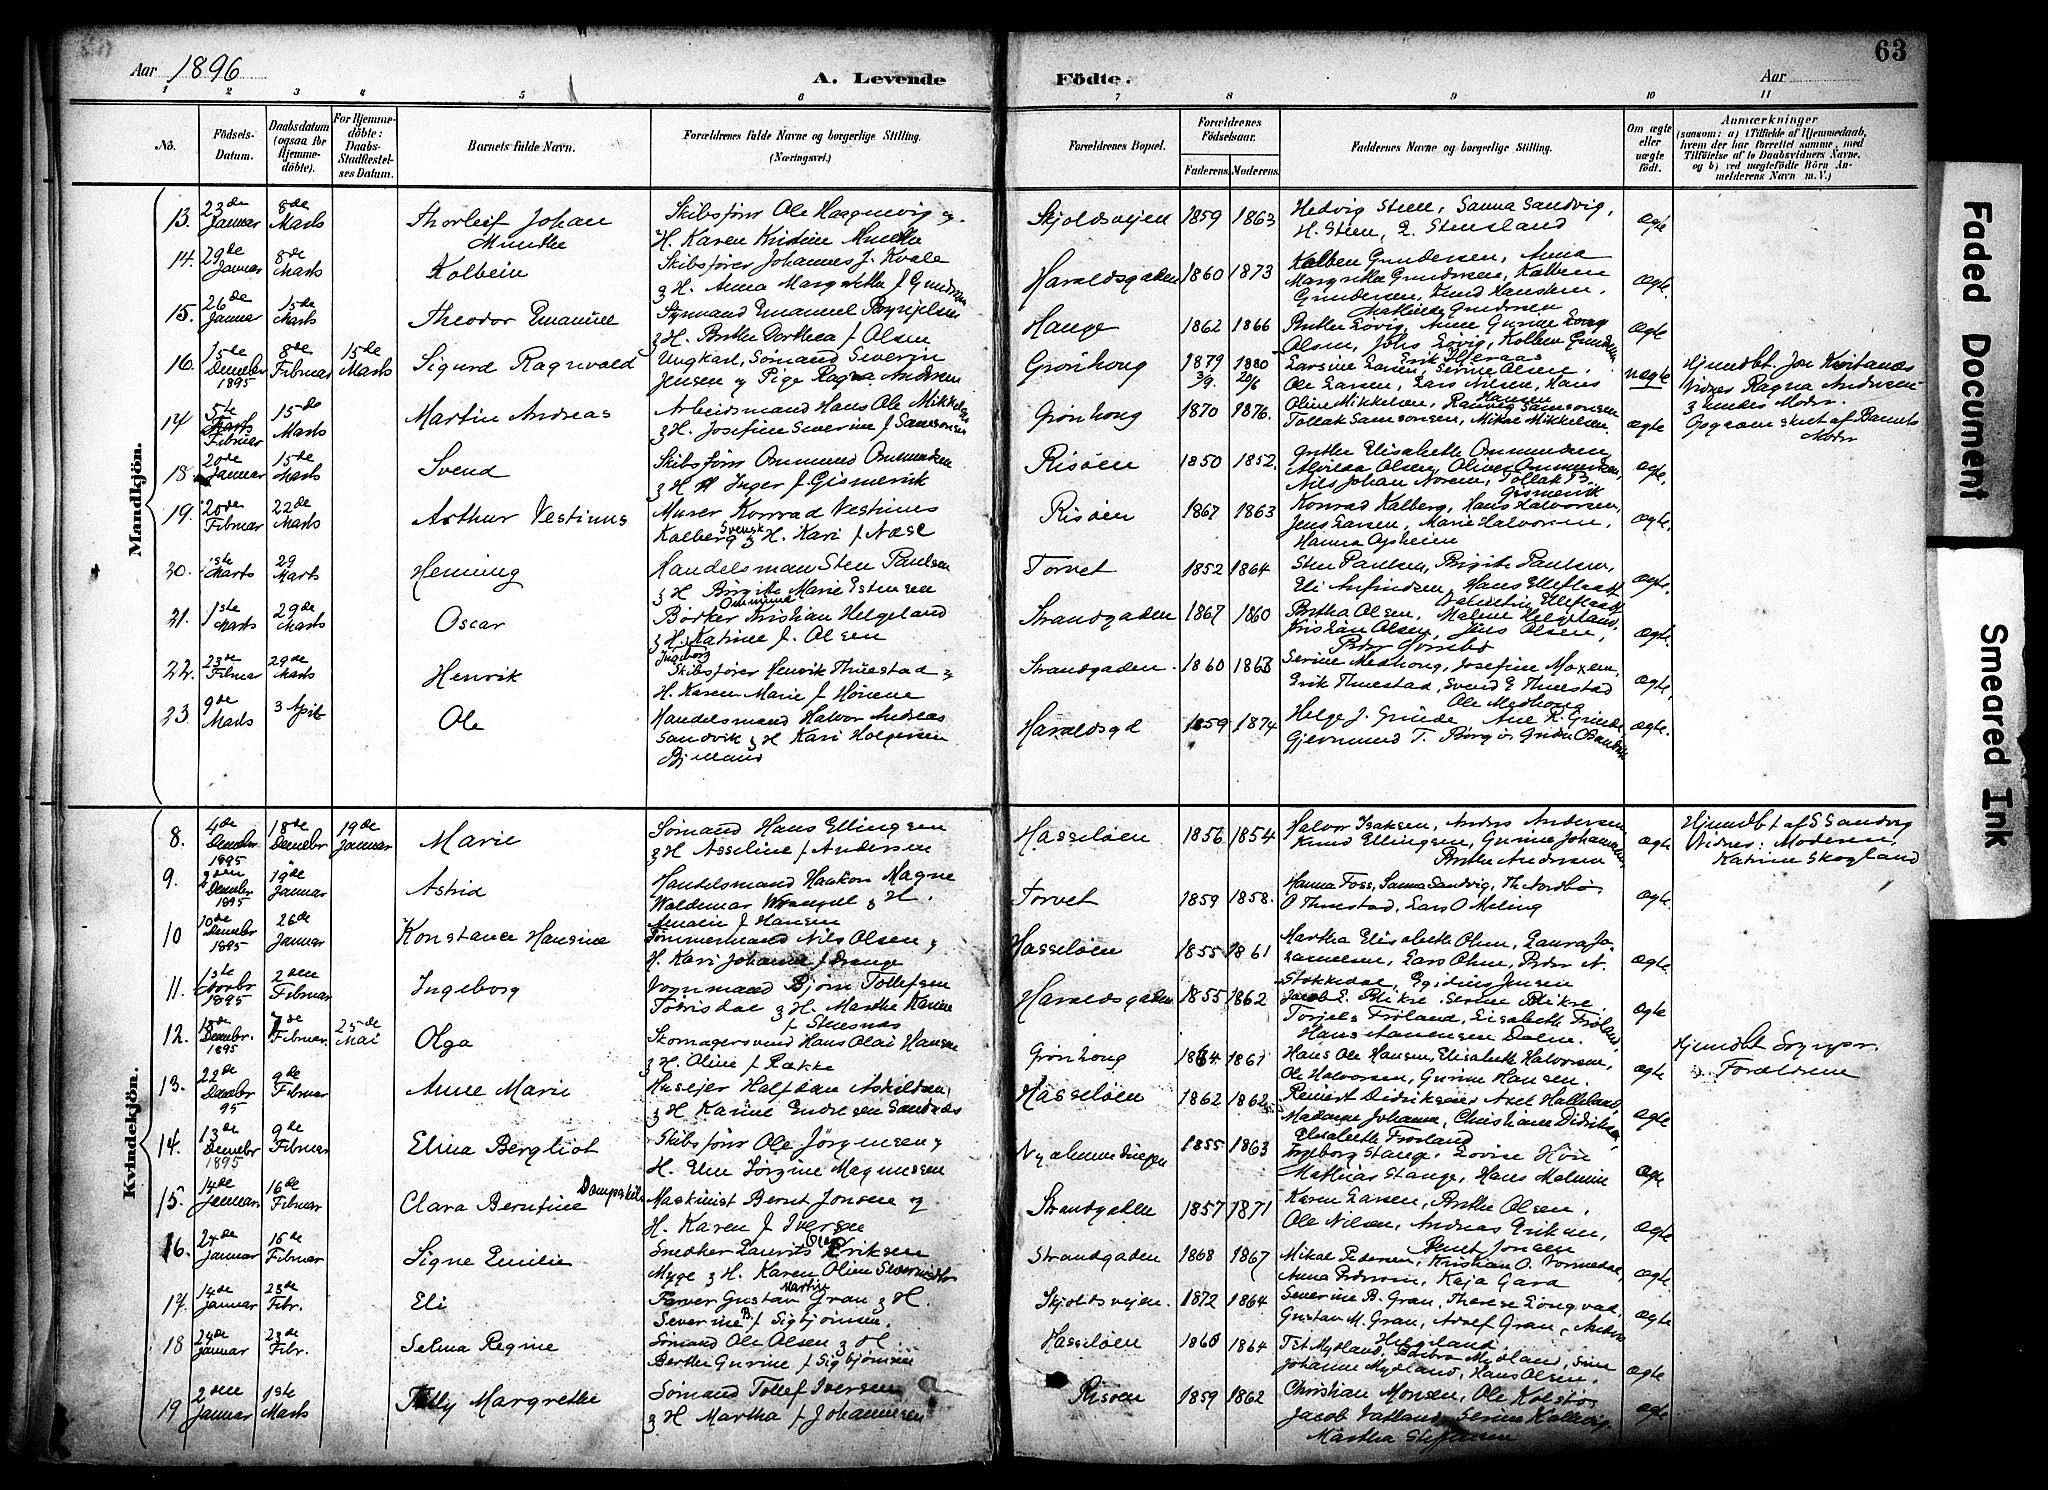 63
Aar 1896
A. Levende
Födte.
Aar
1 2 3 4 5 6 7 8 9 10 11
No.
Födsels-Datum.
Daabsdatum (ogsaa for Hjemmedöbte).
For Hjemmedöbte: Daabs-Stadfæstelses Datum.
Barnets fulde Navn.
Forældrenes fulde Navne og borgerlige Stilling. (Næringsvei.)
Forældrenes Bopæl.
Forældrenes Födselsaar.
Faderens. Moderens.
Faddernes Navne og borgerlige Stilling.
Om ægte eller uægte födt.
Anmærkninger
(saasom: a) i Tilfælde af Hjemmedaab, hvem der har forrettet samme, med Tilföielse af to Daabsvidners Navne, og b) ved uægtefödte Börn Anmelderens Navn m. V.)
Mandkjön.
13. 23de Januar 8de Marts Thorleif Johan Munthe
Skibsfører Ole Haagensvig og H. Karen Kristine Munthe
Skjoldsveien 1859 1863 Hedvig Steen, Sanna Sandvig, H. Steen, Stensland ægte
14. 29de Januar 8de Marts Kolbein
Skibsfører Johannes J. Kvale & H. Anna Margrethe f Gundersen
Haraldsgaden 1860 1873 Kolben Gundersen, Anna Margrethe Gundersen, Kolben Gundersen, Knud Hansten, Mathilde Gundersen ægte
15. 26de Januar 15de Marts Theodor Emanuel
Sømand Emanuel & H. Berthe Dorthea f Olsen
Hauge 1862 1866 Berthe Lovig, Ane Gurine Olsen, Johs Løvig, Kolben Gundersen ægte
16. 15de Decmbr 1895 8de Februar 15de Marts Sigurd Ragnvald
Ungkarl, Sømand Severin Jensen og Pige Ragna Andersen
Grønhoug 1879 3/9 1880 20/6 Larsine Larsen, Serine Olsen, Ole Larsen, Lars Nilsen, Hans Hansen uægte
Hjemdbt. Jon Kvitanæs Vidner Ragna Andersen & hendes Moder. Opgaven skeet af Barnets Moder
17 5te Februar 15de Marts Martin Andreas
Arbeidsmand Hans Ole Mikkelsen & H. Josefine Severine f Samsonsen
Grønhoug 1870 1876. Oline Mikkelsen, Ranveig Samsonsen, Tollak Samsonsen, Mikal Mikkelsen. ægte
18 20de Januar 15de Marts Svend
Skibsfører Ommund Ommundsen & H Inger f. Gismervik
Risøen 1850 1852. Grethe Elisabeth Ommundsen, Alvilda Olsen, Oliver Ommundsen, Nils Johan Noren, Tollak B. Gismervik ægte.
19. 20de Februar 22de Marts Arthur Vestinus
Murer Konrad Vestinus Kalberg Svensk & H. Kari f Næse
Risøen 1867 1863 Konrad Kalberg, Hans Halvorsen, Jens Larsen, Marie Halvorsen, Hanna Opheien ægte,
20. 1ste Marts 29 Marts Henning
Handelsman Sten Paulsen & H Birgitte Marie Estensen
Torvet 1852 1864 Sten Paulsen, Birgitte Paulsen, Eli Anfindsen, Hans Elleflaadt, Valentin Elleflaadt ægte.
21. 1ste Marts 29de Marts Oscar
Bøtker Ommund Kristian Helgeland & H. Katrine f. Olsen
Strandgaden 1867 1860 Bertha Olsen, Maline Helgeland, Kristian Olsen, Jens Olsen, Peder ægte.
22. 23de Februar 29de Marts Henrik
Ingeborg
Skibsfører Henrik Thuestad & H. Karen Marie f Honene
Strandgaden. 1860 1863 Serine Medhoug, Josefine Moxen, Erik Thuestad, Svend E Thuestad Ole Medhoug ægte,
23. 9de Marts 3 April Ole
Handelsmand Halvor Andreas Sandvik & H Kari Holgersen
Haraldsgd 1859 1874 Helge J. Grinde, Ane R. Grinde, Gjermund T. ægte.
Kvindekjön.
8. 4de Decmbr 1895 18de Decmbr 19de Januar Marie
Sømand Hans Ellingsen & H Asseline f Andersen
Hasseløen 1856 1854 Halvor Isaksen, Andrs Andersen, Knud Ellingsen, Gurine Johannesen, Berthe Andersen ægte
Hjemdbt af S Sandvig Vidner: Moderen, Katrine Skogland
9. Decmbr 1895 19de Januar Astrid
Handelsmand Haakon Magne Waldemar Wrangell & H. Amalie f Hansen
Torvet 1859 1858. Hanna Foss, Sanna Sandvig, Th. Nordbø, O Thuestad, Lars O Meling ægte.
10 10de Decmbr 1895 26de Januar Konstance Hansine
Tømmermand Nils Olsen & H. Kari Johanne f Drange
Hasseløen 1855 1861 Martha Elisabeth Olsen, Laura Jo- hannesen, Lars Olsen, Peder N. Stokkedal, Egidius Jensen ægte.
11. 1ste Novbr 1895 2den Februar Ingeborg
Vognmand Bjørn Tollefsen Førrisdal & H. Marthe Karine f Stuesnæs
Haraldsgaden 1855 1862 Jacob E. Blikre, Serine Blikre, Torjels Frøland, Elisabeth Frøland, Hans Aanensen Dalen. ægte
12. 18de Decmbr. 1895 7de Februar. 25de Mai Olga
Skomagersvend Hans Olai Hansen & H. Oline f Røkke
Grønhoug 1864 1861 Hans Ole Hansen, Elisabeth Halvorsen, Ole Halvorsen, Gurine Hansen. ægte
Hjemdbt Sognepr. Forældrene
13. 22de Decmbr 95 9de Februar Anne Marie
Huseier Halfdan Askildsen & H Karine Endresen Sandnæs
Hasseløen 1862 1862 Reinert Didriksen, Axel Halleland, Madame Johanna, Christiane Didriksen, Elisabeth Frøland ægte
14. 13de Decmbr 1895 9de Februar Elina Bergliot
Skibsfører Ole Jørgensen & H. Elen Jørgine Magnussen
1855 1863 Ingeborg Stange, Lovise Høie, Mathias Stange, Hans Malmin ægte
15. 14de Januar 16de Februar Clara Berntine
Dampskibs Maskinist Bernt Jonsen og H. Karen f Iversen
Strandgaden 1857 1871 Karen Larsen, Berthe Olsen, Ole Nilsen, Andreas Eriksen, Bernt Jonsen ægte
16. 24de Januar 16de Februar Signe Emilie
Snedker Laurits Eriksen Myge & H. Karen Oline
Strandgaden 1868 1867 Mikal Pedersen, Kristian O. Vormedal, Anna Pedersen, Kaja Gard ægte.
17. 14de Januar 23de Febr. Eli
Farver Gustav Martin Gran & H. Severine B. f Sigbjørnsen
Skjoldsveien. 1872 1864 Severine B. Gran, Therese Longvad, Gustav M. Gran, Adolf Gran, Andrs Helgeland ægte
18 24de Januar 23de Febr. Selma Regine
Sømand Ole Olsen & H Berthe Gurine f Sigbjørnsen
Hasseløen 1860 1864 Tst Mydland, Petra Mydland, Sine Johanne Mydland, Hans Olsen. ægte
19 2den Januar 1ste Marts Margrethe
Sømand Tollef Iversen & H Martha f Johannesen
Risøen 1859 1862 Christian Monsen, Ole Kolstø, Jacob Vatland, Serine Kallevig, Martha Steffensen ægte
Faded Document
Smeared Ink